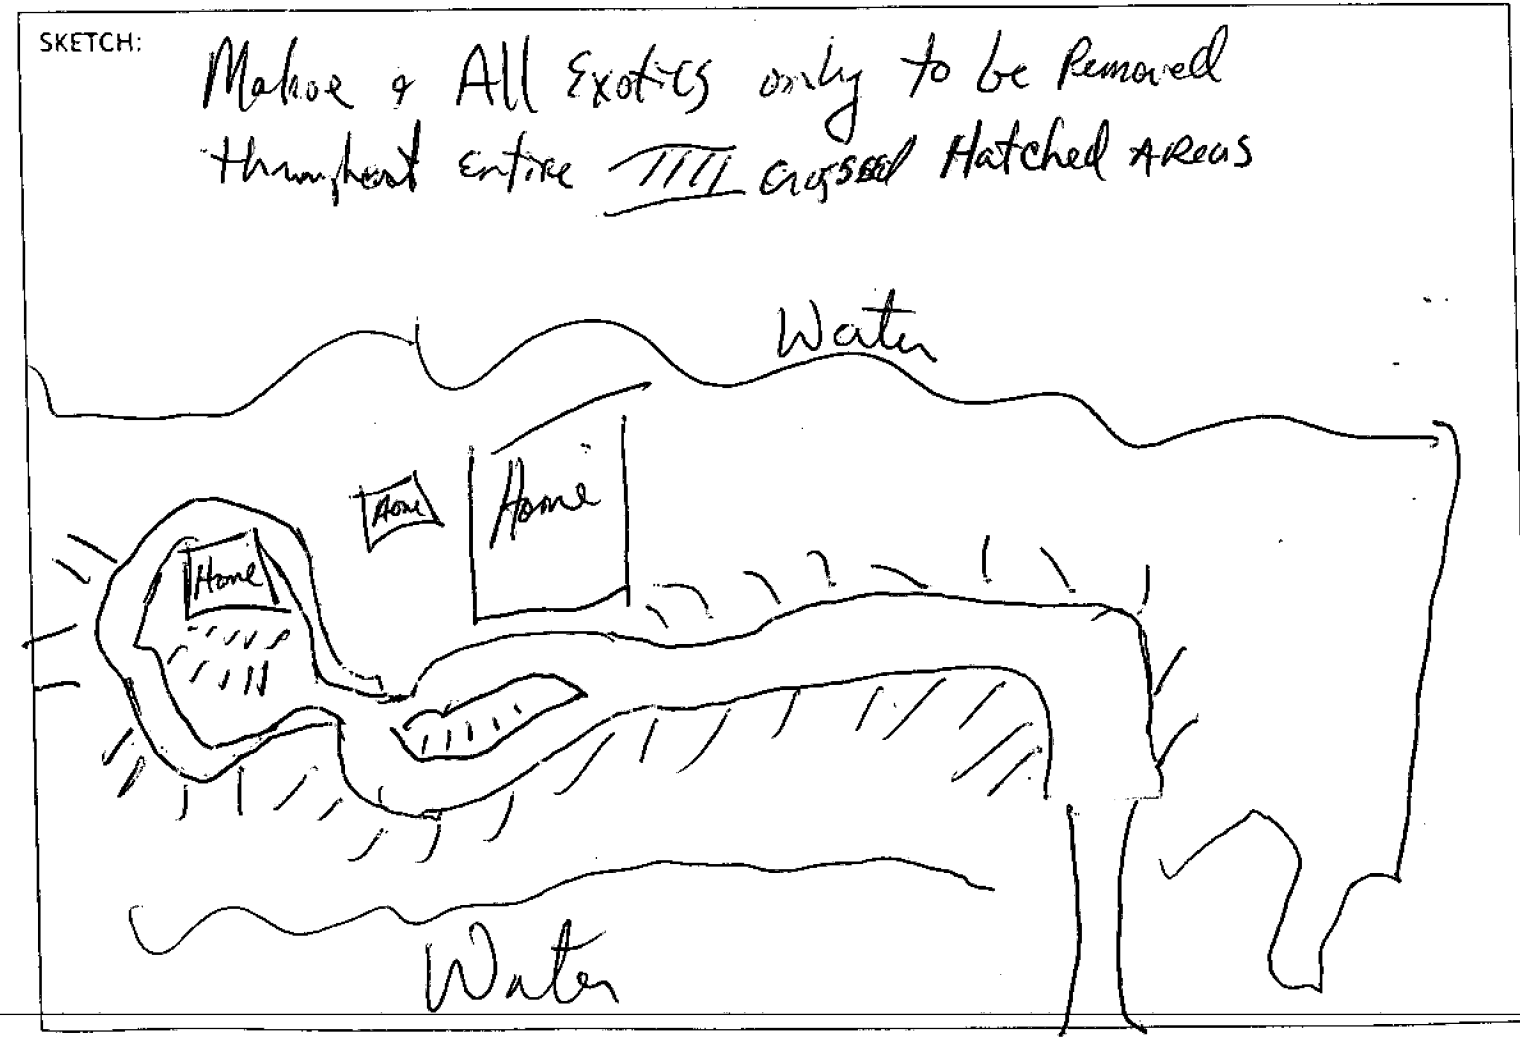 SKETCH:
Mahoe & All Exotics only to be Removed
throughout Entire crossed Hatched AReas
Water
Home
Home
Home
Water